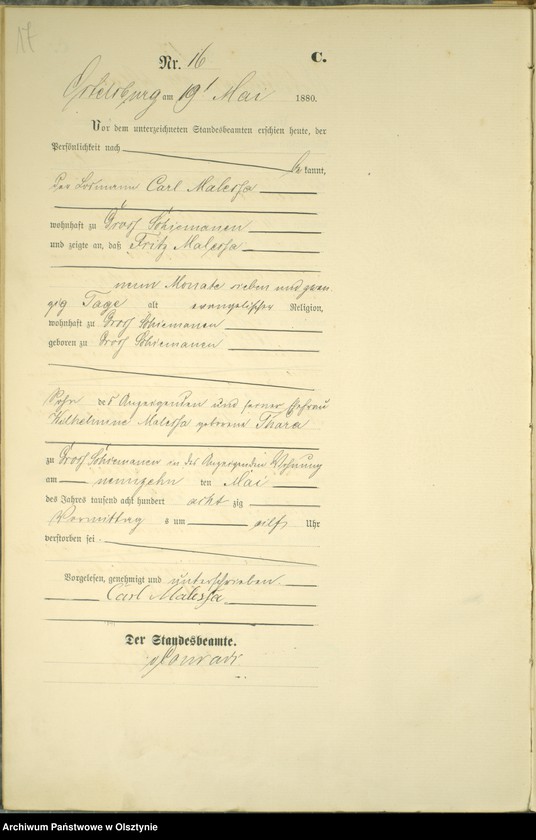 17
C.
Nr. 16
Ortelsburg am 19t Mai 1880.
Vor dem unterzeichneten Standesbeamten erschien heute, der
Persönlichkeit nach
be kannt,
der Losmann Carl Malessa
wohnhaft zu Gross Schiemanen
und zeigte an, daß Fritz Malessa
neun Monate sieben und zwan
zig Tage alt evangelischer Religion,
wohnhaft zu Gross Schiemanen
geboren zu Gross Schiemanen
Sohn des Anzeigenden und seiner Ehefrau
Wilhelmine Malessa geborene
zu Gross Schiemanen in des Anzeigenden Wohnung
am neunzehn ten Mai
des Jahres tausend acht hundert acht zig
Vormittag s um eilf Uhr
verstorben sei.
Vorgelesen, genehmigt und unterschrieben.
Carl Malessa
Der Standesbeamte.
Conrad
Archiwum Państwowe w Olsztynie